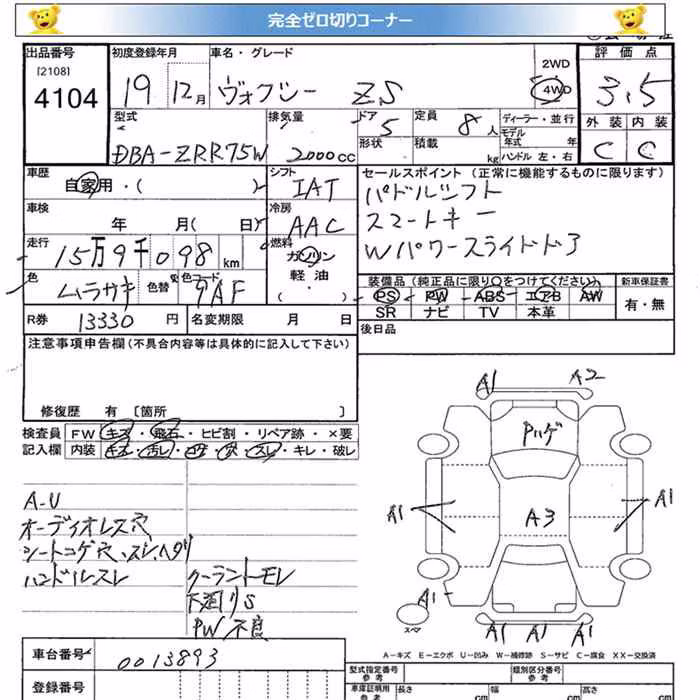 完全ゼロ切りコーナー
出品番号 初度登録年月 車名・グレード 評価点
[2108]
4104 19 12月 ヴォクシー ZS 2WD 4WD 3.5
型式 排気量 ドア 定員 ディーラー・並行 外装 内装
DBA-ZRR75W 2000cc 5 8人 モデル年式 年 C C
形状 積載 kg ハンドル 左・右
車歴 シフト セールスポイント(正常に機能するものに限ります)
自家用・( ) IAT パドルシフト
車検 冷房 スマートキー
年 月( 日) AAC Wパワースライドドア
走行 燃料
15万9千098km ガソリン
軽・油
( )
色 色替 色コード 装備品(純正品に限り○をつけてください) 新車保証書
ムラサキ 9AF PS PW ABS エアB AW 有・無
SR ナビ TV 本革
R券 13330円 名変期限 月 日 後日品
注意事項申告欄(不具合内容等は具体的に記入して下さい)
修復歴 有 [箇所 ]
検査員 FW キズ・飛石・ヒビ割・リペア跡・×要
記入欄 内装 キズ・汚レ・コゲ・穴・スレ・キレ・破レ
A-U
オーディオレス穴
シートコゲ穴、スレ、ヘタリ
ハンドルスレ クーラントモレ
下廻りS
PW不良
A1 A2
Pハゲ
A1 A3 A1
A1 A1 A1 A1
スペア
A-キズ E-エクボ U-凹み W-補修跡 S-サビ C-腐食 XX-交換済
車台番号 0013893 型式指定番号 参考 類別区分番号 参考
登録番号 車庫証明用 参考 長さ cm 幅 cm 高さ cm